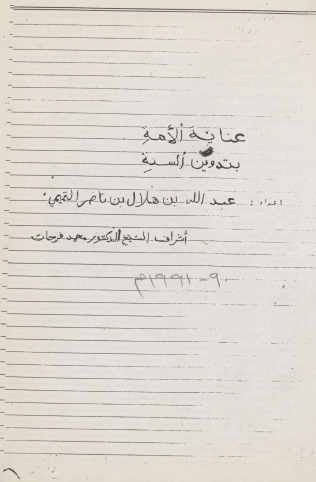 عناية الأمة
بتدوين السنة
اعداد: عبد الله بن هلال بن ناصر التميمي
أشراف الشيخ الدكتور محمد فرحات
٩٠-١٩٩١م